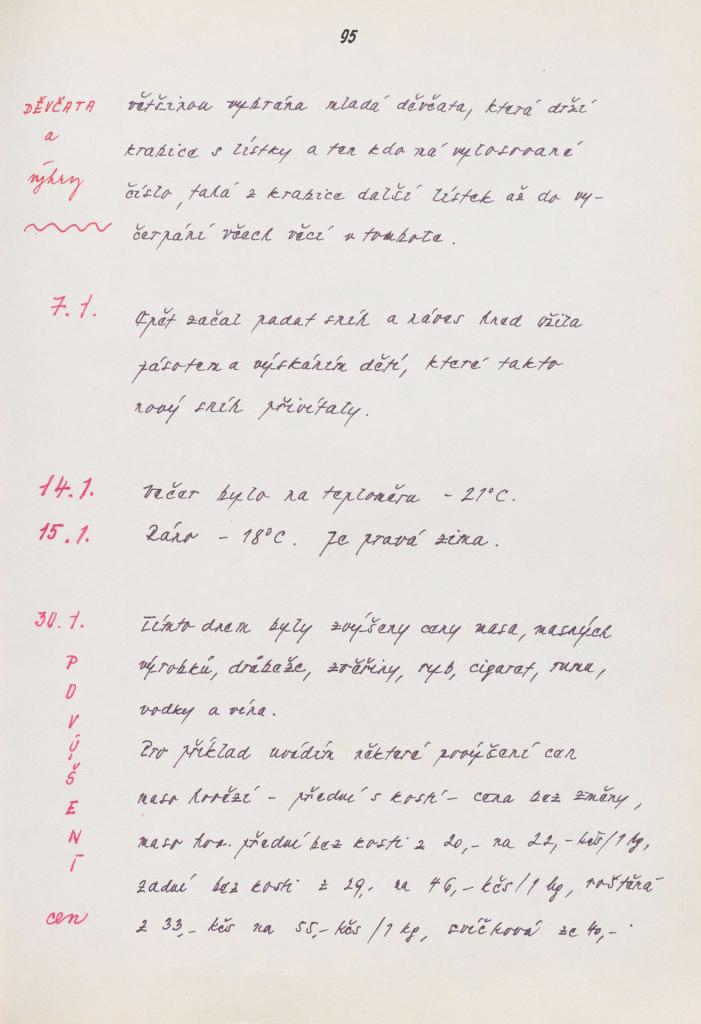 95
DĚVČATA
a
výhry
většinou vybrána mladá děvčata, která drží
krabice s lístky a ten kdo má vylosované
číslo, tahá z krabice další lístek až do vy-
čerpání všech věcí v tombole.
7.1.
Opět začal padat sníh a náves hned ožila
jásotem a výskáním dětí, které takto
nový sníh přivítaly.
14.1.
Večer bylo na teploměru - 21°C.
15.1.
Ráno - 18°C. Je pravá zima.
30.1.
Tímto dnem byly zvýšeny ceny masa, masných
výrobků, drůbeže, zvěřiny, ryb, cigaret, rumu,
vodky a vína.
POVÝŠENÍ
cen
Pro příklad uvádím některé povýšení cen
maso hovězí - přední s kostí - cena bez změny,
maso hov. přední bez kosti z 20,- na 22,- kčs/1 kg,
zadní bez kosti z 29,- na 46,- kčs/1 kg, roštěná
z 33,- kčs na 55,- kčs/1 kg, svíčková ze 40,-